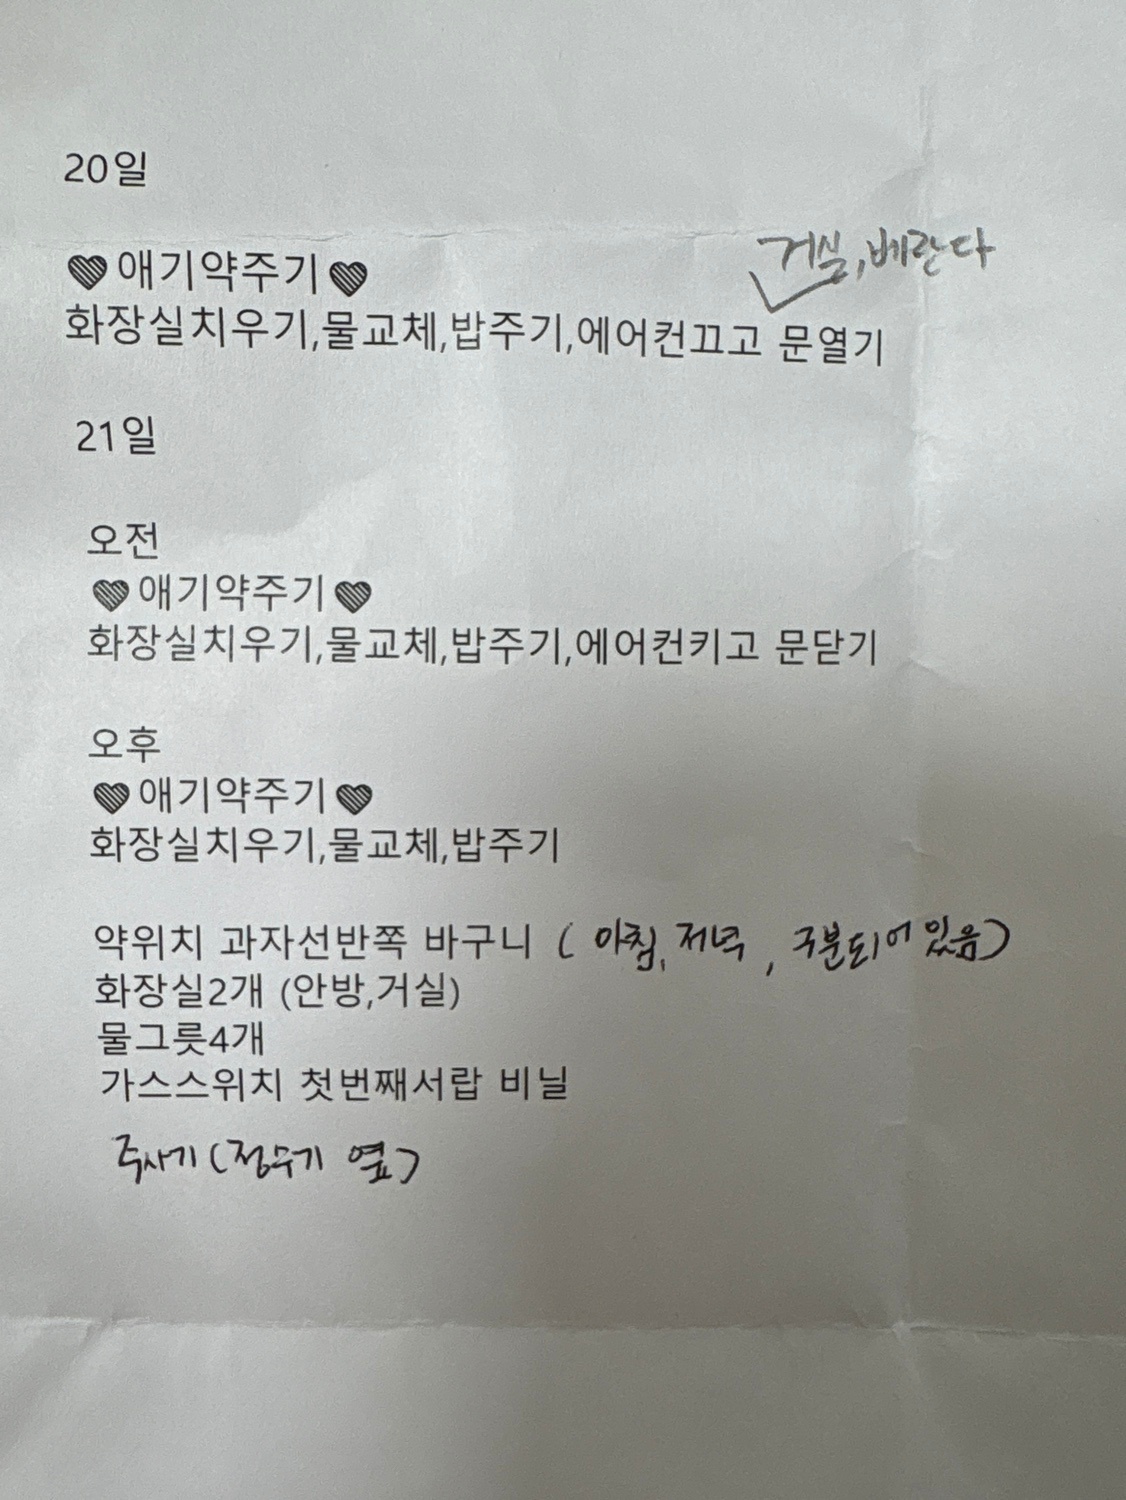 20일
거실,베란다
♥애기약주기♥
화장실치우기,물교체,밥주기,에어컨끄고 문열기
21일
오전
♥애기약주기♥
화장실치우기,물교체,밥주기,에어컨키고 문닫기
오후
♥애기약주기♥
화장실치우기,물교체,밥주기
약위치 과자선반쪽 바구니 ( 아침, 저녁 , 구분되어 있음)
화장실2개 (안방,거실)
물그릇4개
가스스위치 첫번째서랍 비닐
주사기(정수기 옆)